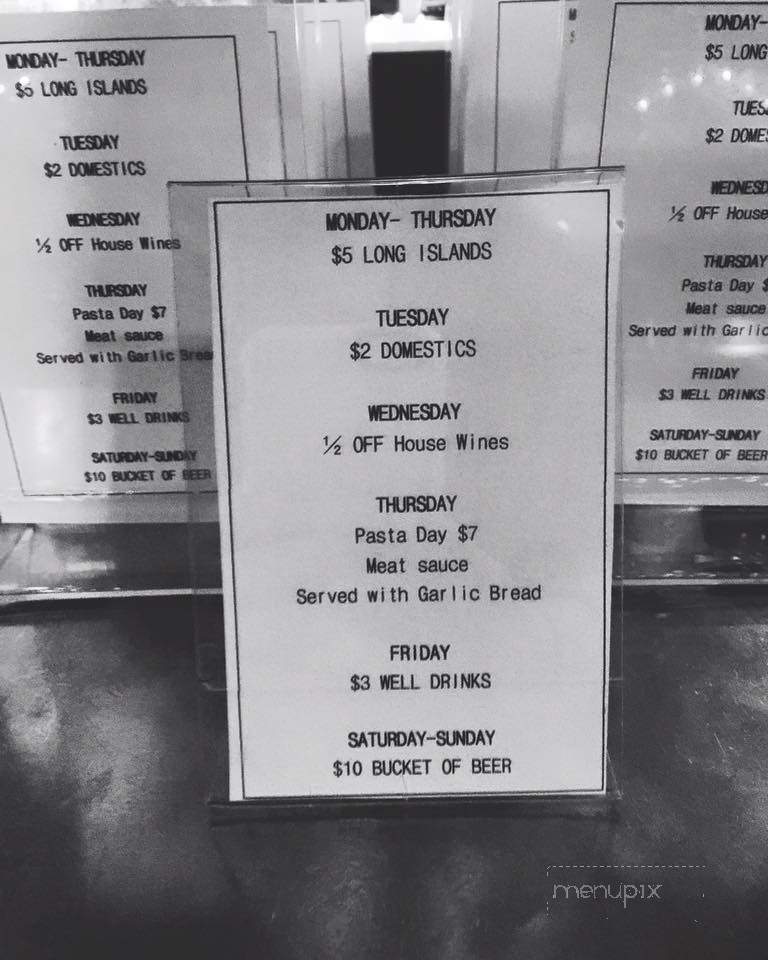 MONDAY- THURSDAY
$5 LONG ISLANDS
TUESDAY
$2 DOMESTICS
WEDNESDAY
½ OFF House Wines
THURSDAY
Pasta Day $7
Meat sauce
Served with Garlic Bread
FRIDAY
$3 WELL DRINKS
SATURDAY-SUNDAY
$10 BUCKET OF BEER
MONDAY- THURSDAY
$5 LONG ISLANDS
TUESDAY
$2 DOMESTICS
WEDNESDAY
½ OFF House Wines
THURSDAY
Pasta Day $7
Meat sauce
Served with Garlic Bread
FRIDAY
$3 WELL DRINKS
SATURDAY-SUNDAY
$10 BUCKET OF BEER
MONDAY-
$5 LONG
TUES
$2 DOMES
WEDNESD
½ OFF House
THURSDAY
Pasta Day $
Meat sauce
Served with Garlic
FRIDAY
$3 WELL DRINKS
SATURDAY-SUNDAY
$10 BUCKET OF BEER
menupix